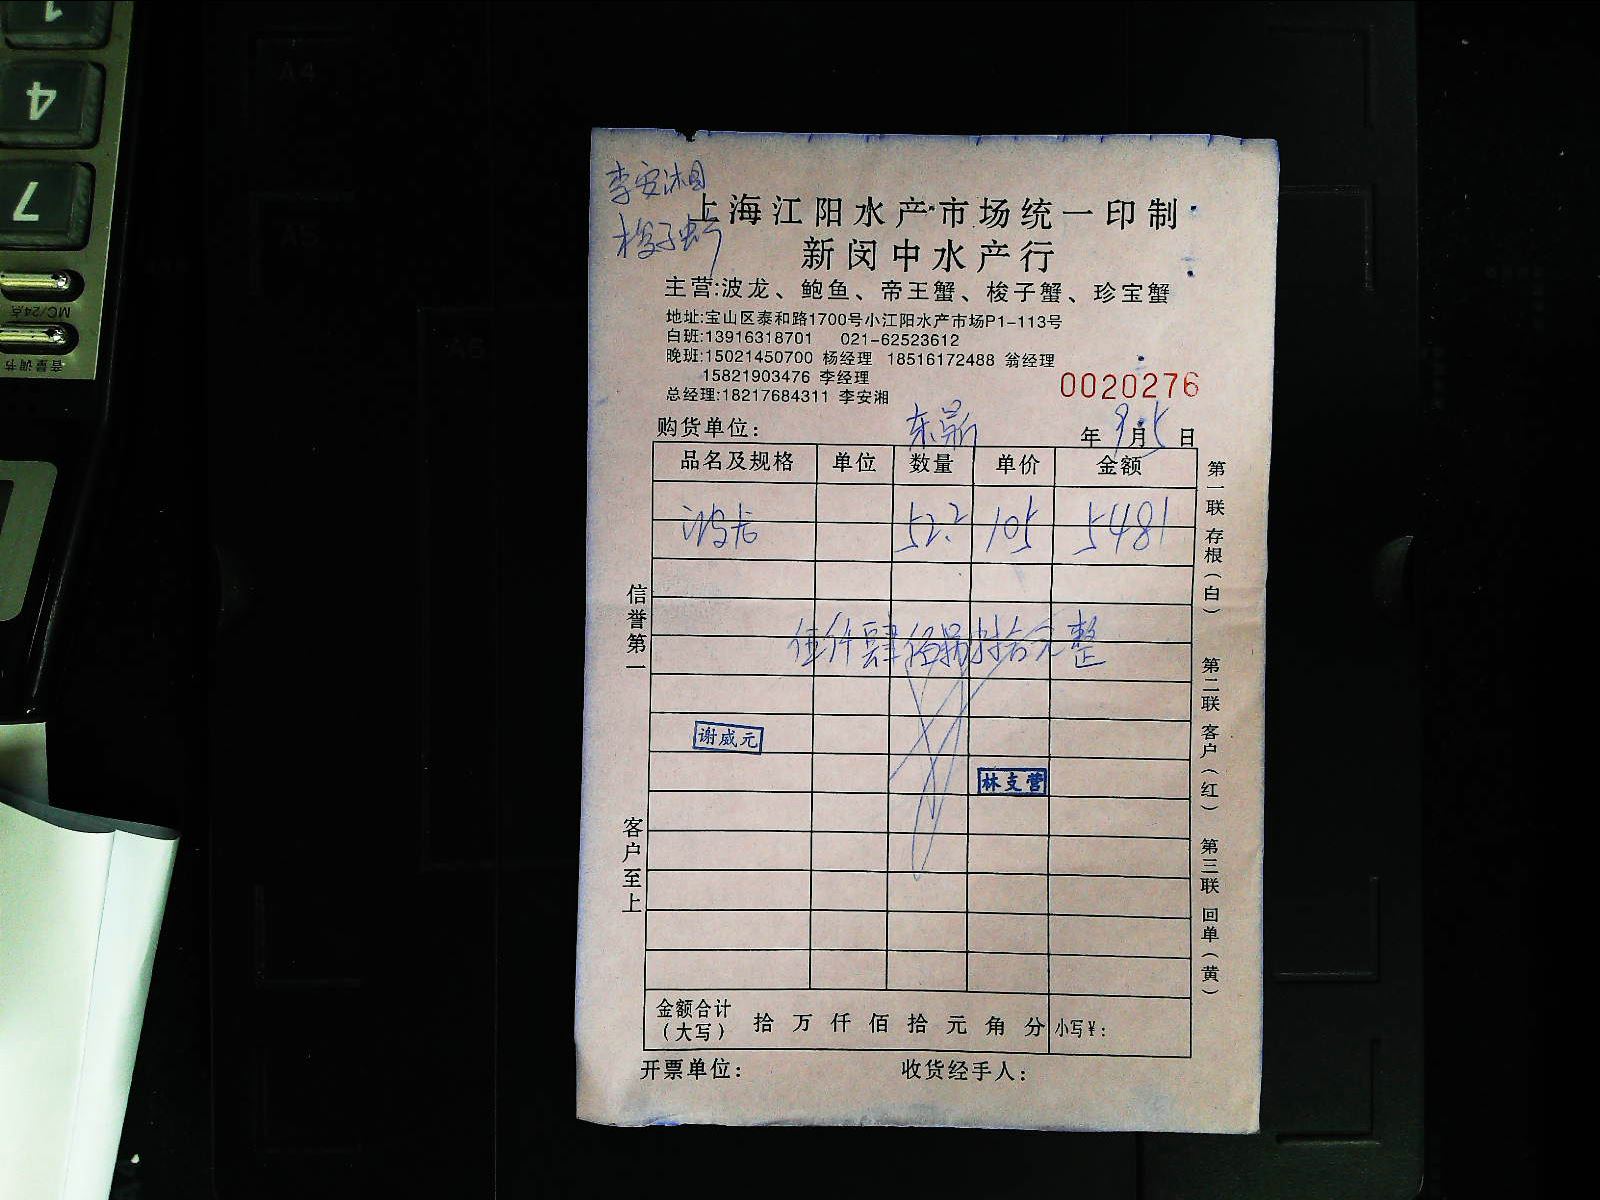 1
4
7
MC/24点
音量调节
A4
A5
A6
李安湘
梭子蟹
上海江阳水产市场统一印制
新闵中水产行
主营:波龙、鲍鱼、帝王蟹、梭子蟹、珍宝蟹
地址:宝山区泰和路1700号小江阳水产市场P1-113号
白班:13916318701 021-62523612
晚班:15021450700 杨经理 18516172488 翁经理
15821903476 李经理
总经理:18217684311 李安湘
0020276
购货单位: 年9月5日
品名及规格 单位 数量 单价 金额
波龙 52.2 105 5481
伍仟肆佰捌拾元整
谢威元
林支营
金额合计(大写) 拾 万 仟 佰 拾 元 角 分 小写¥:
开票单位: 收货经手人:
信誉第一
客户至上
第一联 存根(白)
第二联 客户(红)
第三联 回单(黄)